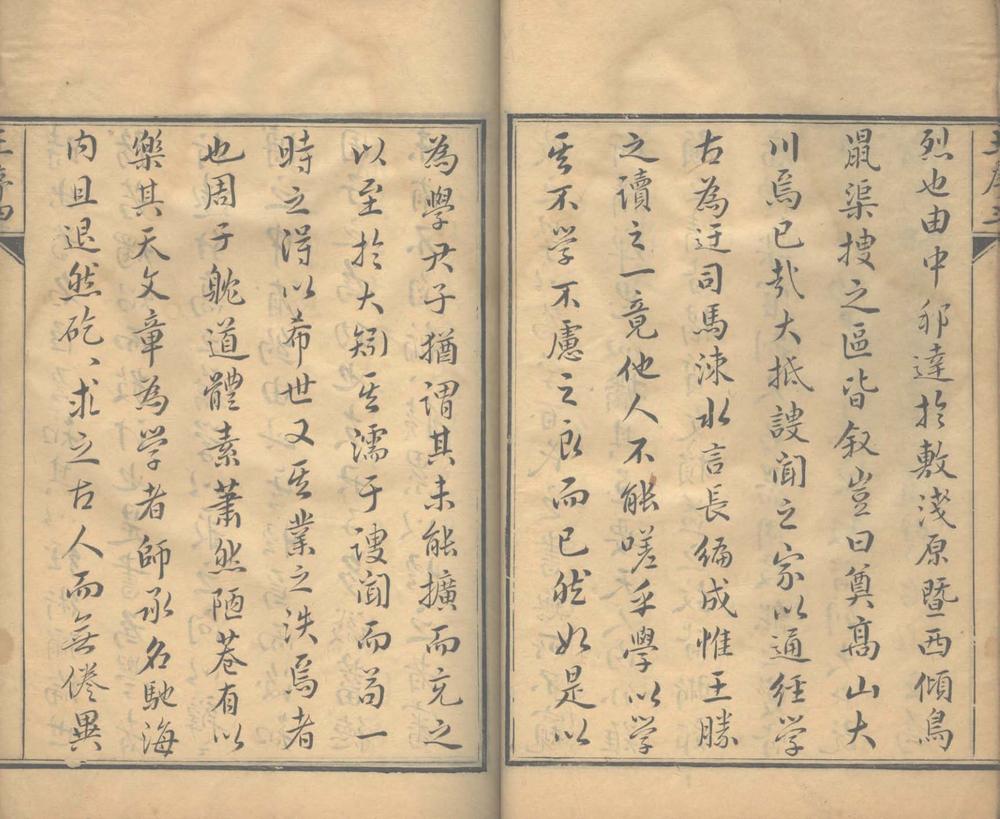 烈也由中邦達於敷淺原暨西傾鳥
鼠渠搜之區皆叙豈曰奠高山大
川焉已哉大抵謏聞之家以通經學
古為迂司馬涑水言長編成惟王勝
之讀之一竟他人不能嗟乎學以學
其不學不慮之良而已然如是以
為學尹子猶謂其未能擴而充之
以至於大矧其濡于謏聞而苟一
時之得以希世又其業之泆焉者
也周子躭道體素蕭然陋巷有以
樂其天文章為學者師承名馳海
内且退然矻〻求之古人而無倦異